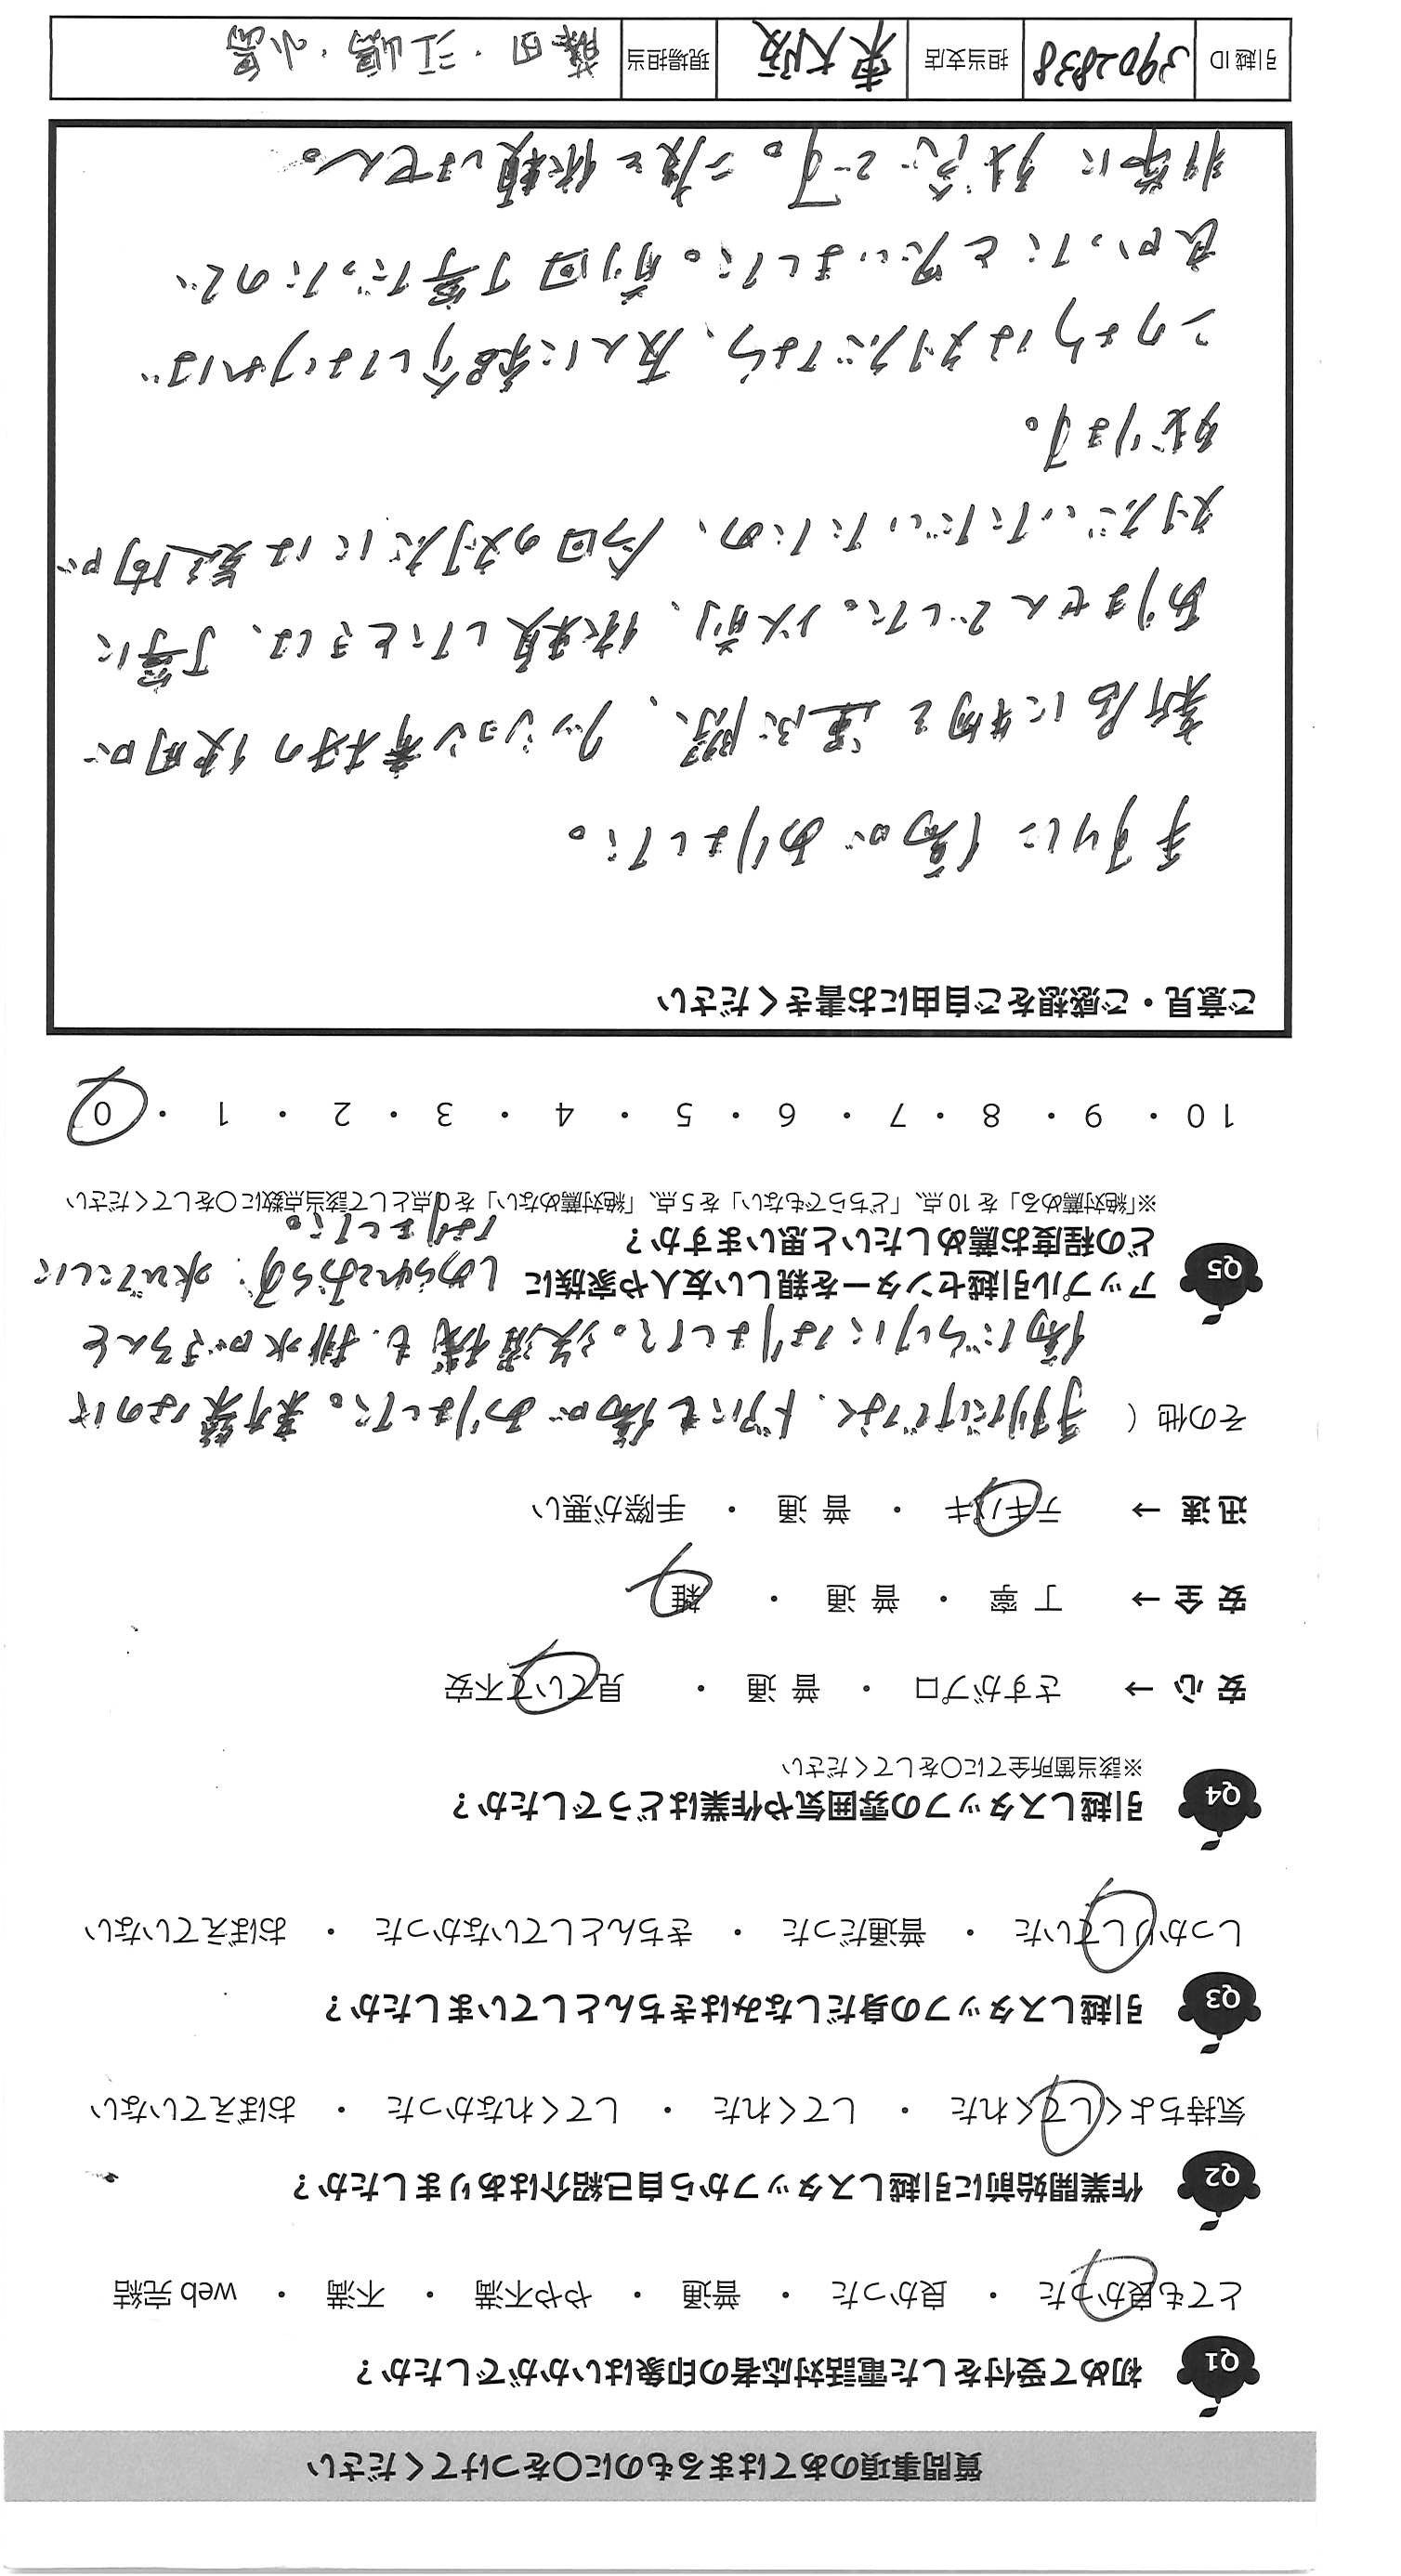 質問事項のあてはまるものに〇をつけてください
Q1 初めて受付をした電話対応者の印象はいかがでしたか？
とても良かった ・ 良かった ・ 普通 ・ やや不満 ・ 不満 ・ web 完結
Q2 作業開始前に引越しスタッフから自己紹介はありましたか？
気持ちよくしてくれた ・ してくれた ・ してくれなかった ・ おぼえていない
Q3 引越しスタッフの身だしなみはきちんとしていましたか？
しっかりしていた ・ 普通だった ・ きちんとしていなかった ・ おぼえていない
Q4 引越しスタッフの雰囲気や作業はどうでしたか？
※該当箇所全てに〇をしてください
安 心 → さすがプロ ・ 普 通 ・ 見ていて不安
安 全 → 丁 寧 ・ 普 通 ・ 雑
迅 速 → テキパキ ・ 普 通 ・ 手際が悪い
その他 （ 手すりだけでなく、ドアにも傷がありました。新築なのに
傷だらけになりました。洗濯機も、排水がきちんと
しめられておらず、水びたしに
なりました。
Q5 アップル引越センターを親しい友人や家族に
どの程度お薦めしたいと思いますか？
※「絶対薦める」を 10 点、「どちらでもない」を 5 点、「絶対薦めない」を 0 点として該当点数に〇をしてください
10 ・ 9 ・ 8 ・ 7 ・ 6 ・ 5 ・ 4 ・ 3 ・ 2 ・ 1 ・ 0
ご意見・ご感想をご自由にお書きください
手すりに傷がありました。
新居に物を運ぶ際、クッション素材の使用が
ありませんでした。以前、依頼したときは、丁寧に
対応いただいたため、今回の対応には疑問が
残ります。
このような対応なら、友人に紹介しなければ
良かったと思いました。前回丁寧だったので、
非常に残念です。二度と依頼しません。
引越 ID 3902838 担当支店 東大阪 現場担当 藤田・江嶋・小島